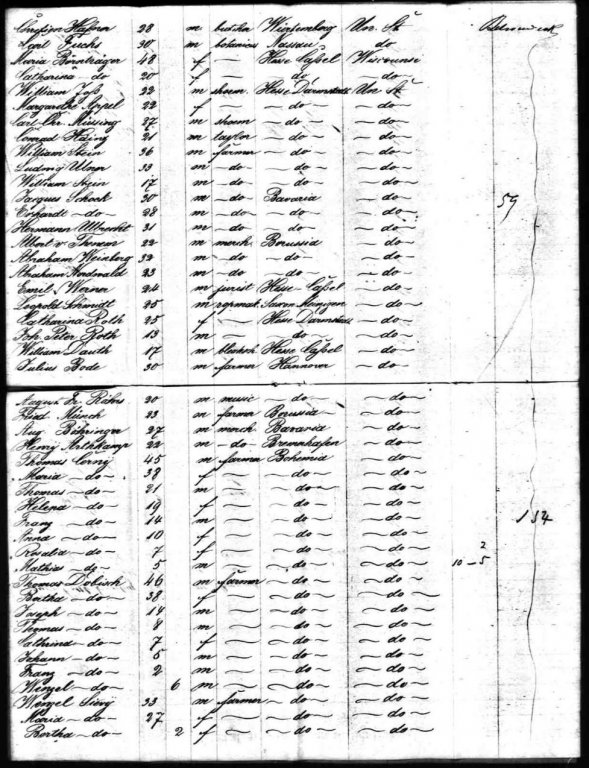 Hafner 28 m Würtemberg Un. St.
Carl Fuchs 30 m botanicus Nassau do
Maria Bornträger 48 f — Hesse Caßel Wisconsi
Catharina — do 20 f do do
William Joß 22 m shoem. Hesse Darmstadt Un. St.
Margarethe Appel 22 f — — do — — do —
Carl Chr. Müssing 27 m shoem — do — — do —
Conrad 21 m taylor — do — — do —
William Stein 36 m farmer — do — — do —
Ludwig Ulner 33 m — do — — do — — do —
William Stein 17 m — do — — do — — do —
Schock 30 m — do — Bavaria — do — 59
Erhardt — do — 28 m — do — — do — — do —
Hermann Ulbrecht 31 m — do — — do — — do —
Albert v. 22 m merch. Borussia — do —
Abraham Weinberg 32 m — do — — do — — do —
Abraham Nordwald 23 m — do — — do — — do —
Emil Werner 24 m jurist Hesse Caßel — do —
Leopold Schmidt 25 m — do —
Catharina Roth 25 f — Hesse Darmstadt — do —
Joh. Peter Roth 13 m — — do — — do —
William Dauth 17 m Hesse Caßel — do —
Julius Bode 30 m farmer Hannover — do —
August Fr. 20 m music — do — — do —
Fried. Münch 23 m farmer Borussia — do —
Aug. Böhringer 27 m merch Bavaria — do —
Henry 22 m — do — Bremerhafen — do —
Thomas Cerny 45 m farmer Bohemia — do —
Maria — do — 38 f — — do — — do —
Thomas — do — 21 m — — do — — do —
Helena — do — 19 f — — do — — do —
Franz — do — 14 m — — do — — do — 134
Anna — do — 10 f — — do — — do —
Rosalia — do — 7 f — — do — — do — 2
Mathias — do — 5 m — — do — — do — 10 — 5
Thomas Dobisch 46 m farmer — do — — do —
Bertha — do — 38 f — — do — — do —
Joseph — do — 14 m — — do — — do —
Thomas — do — 8 m — — do — — do —
Cathrina — do — 7 f — — do — — do —
Johann — do — 5 m — — do — — do —
Franz — do — 2 m — — do — — do —
Wenzel — do — 6 m — — do — — do —
Wenzel 33 m farmer — do — — do —
Maria — do — 27 f — — do — — do —
Bertha — do — 2 f — — do — — do —